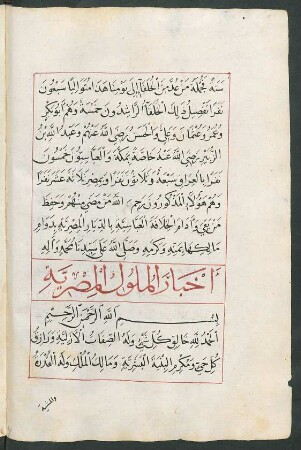 سنة فجملة من عددٍ من الخلفآ إلى يومنا هذا متواليًا سبعون
نفرًا تفصيل ذلك الخلفآ الراشدون خمسة وهم أبو بكر
وعمر وعثمان وعلي والحسن رضي الله عنهم وعبد الله بن
الزبير رضي الله عنه خاصة بمكة والعباسيون خمسون
نفرًا بالعراق سبعة وثلاثون نفرا وبمصر ثلاثة عشر نفرا
وهم هولآ المذكورون رحم الله من مضى منهم وحفظ
من بقي وأدام الخلافة العباسية بالديار المصرية بدوام
مالكها بمنه وكرمه وصلى الله على سيدنا محمد وآله
أخبار الملوك المصرية
بسم الله الرحمن الرحيم
الحمد لله خالق كل شي وله الصفات الأزلية ورازق
كل حي ومكرم البنية البشرية ومالك الملك وله القدرة